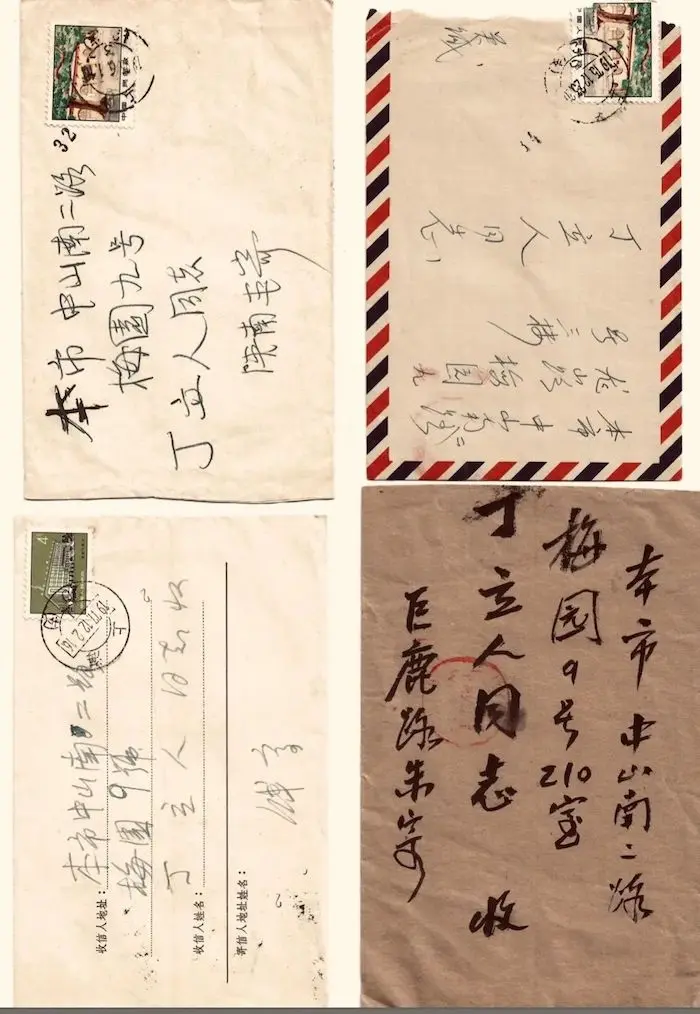 32
本市 中山南二路
梅園九号
丁立人同志
陕南
中国人民邮政
本市中山南二路
梅园九
号三楼
丁立人同志
4
收信人地址：本市中山南二路
梅園9號
收信人姓名：丁立人同志收
寄信人姓名：
本市中山南二路
梅园9号210室
丁立人同志 收
巨鹿路朱寄